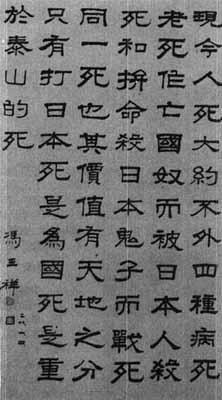 現今人死大約不外四種病死
老死作亡國奴而被日本人殺
死和拚命殺日本鬼子而戰死
同一死也其價值有天地之分
只有打日本死是為國死是重
於泰山的死
馮玉祥